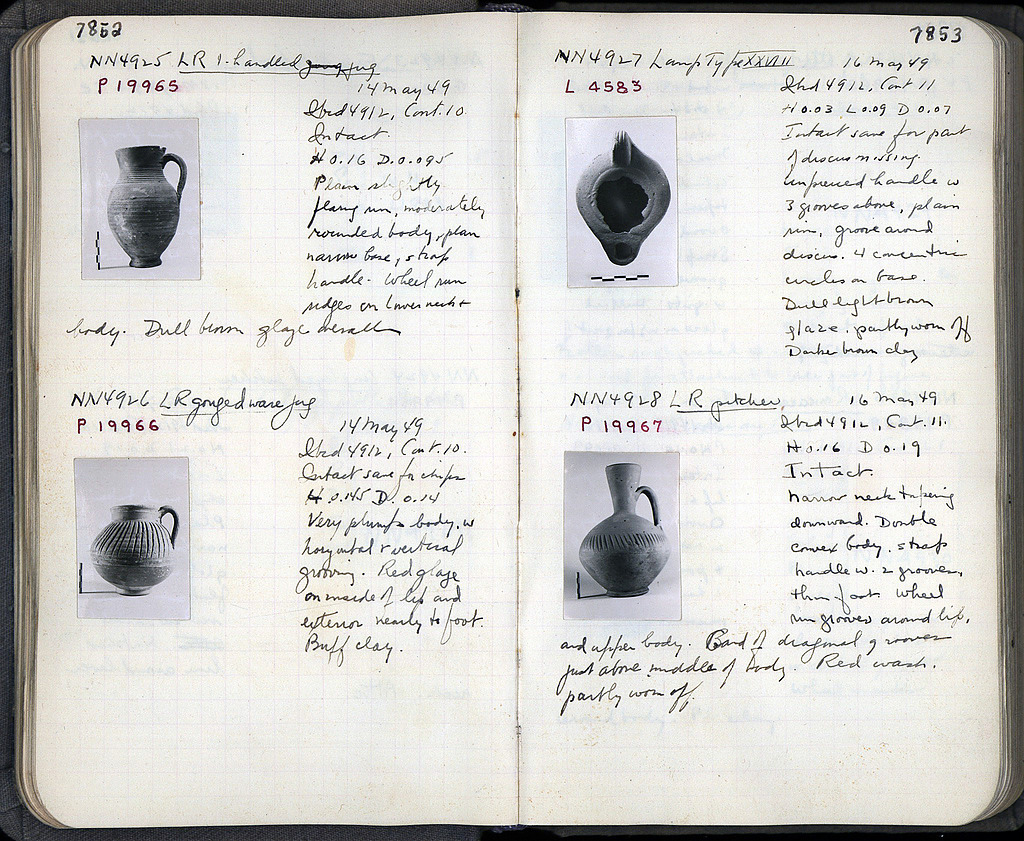 7852
NN4925 LR 1-handled jug
P 19965
14 May 49
Ibid 4912, Cont. 10
Intact.
H 0.16 D. 0.095
Plain slightly
flaring rim, moderately
rounded body, plain
narrow base, strap
handle. Wheel run
ridges on lower neck +
body. Dull brown glaze overall
NN4926 LR gouged ware jug
P 19966
14 May 49
Ibid 4912, Cont. 10.
Intact save for chips
H 0.145 D. 0.14
Very plump body, w
horizontal + vertical
grooving. Red glaze
on inside of lip and
exterior nearly to foot.
Buff clay.
7853
NN4927 Lamp Type XXVIII
16 May 49
L 4583
Ibid 4912, Cont 11
H 0.03 L 0.09 D 0.07
Intact save for part
of discus missing.
unpierced handle w
3 grooves above, plain
rim, groove around
discus. 4 concentric
circles on base.
Dull light brown
glaze. partly worn off
Darker brown clay
NN4928 LR pitcher
16 May 49
P 19967
Ibid 4912, Cont. 11.
H 0.16 D 0.19
Intact.
narrow neck tapering
downward. Double
convex body. strap
handle w. 2 grooves,
thin foot. Wheel
run grooves around lip,
and upper body. Band of diagonal grooves
just above middle of body. Red wash.
partly worn off.